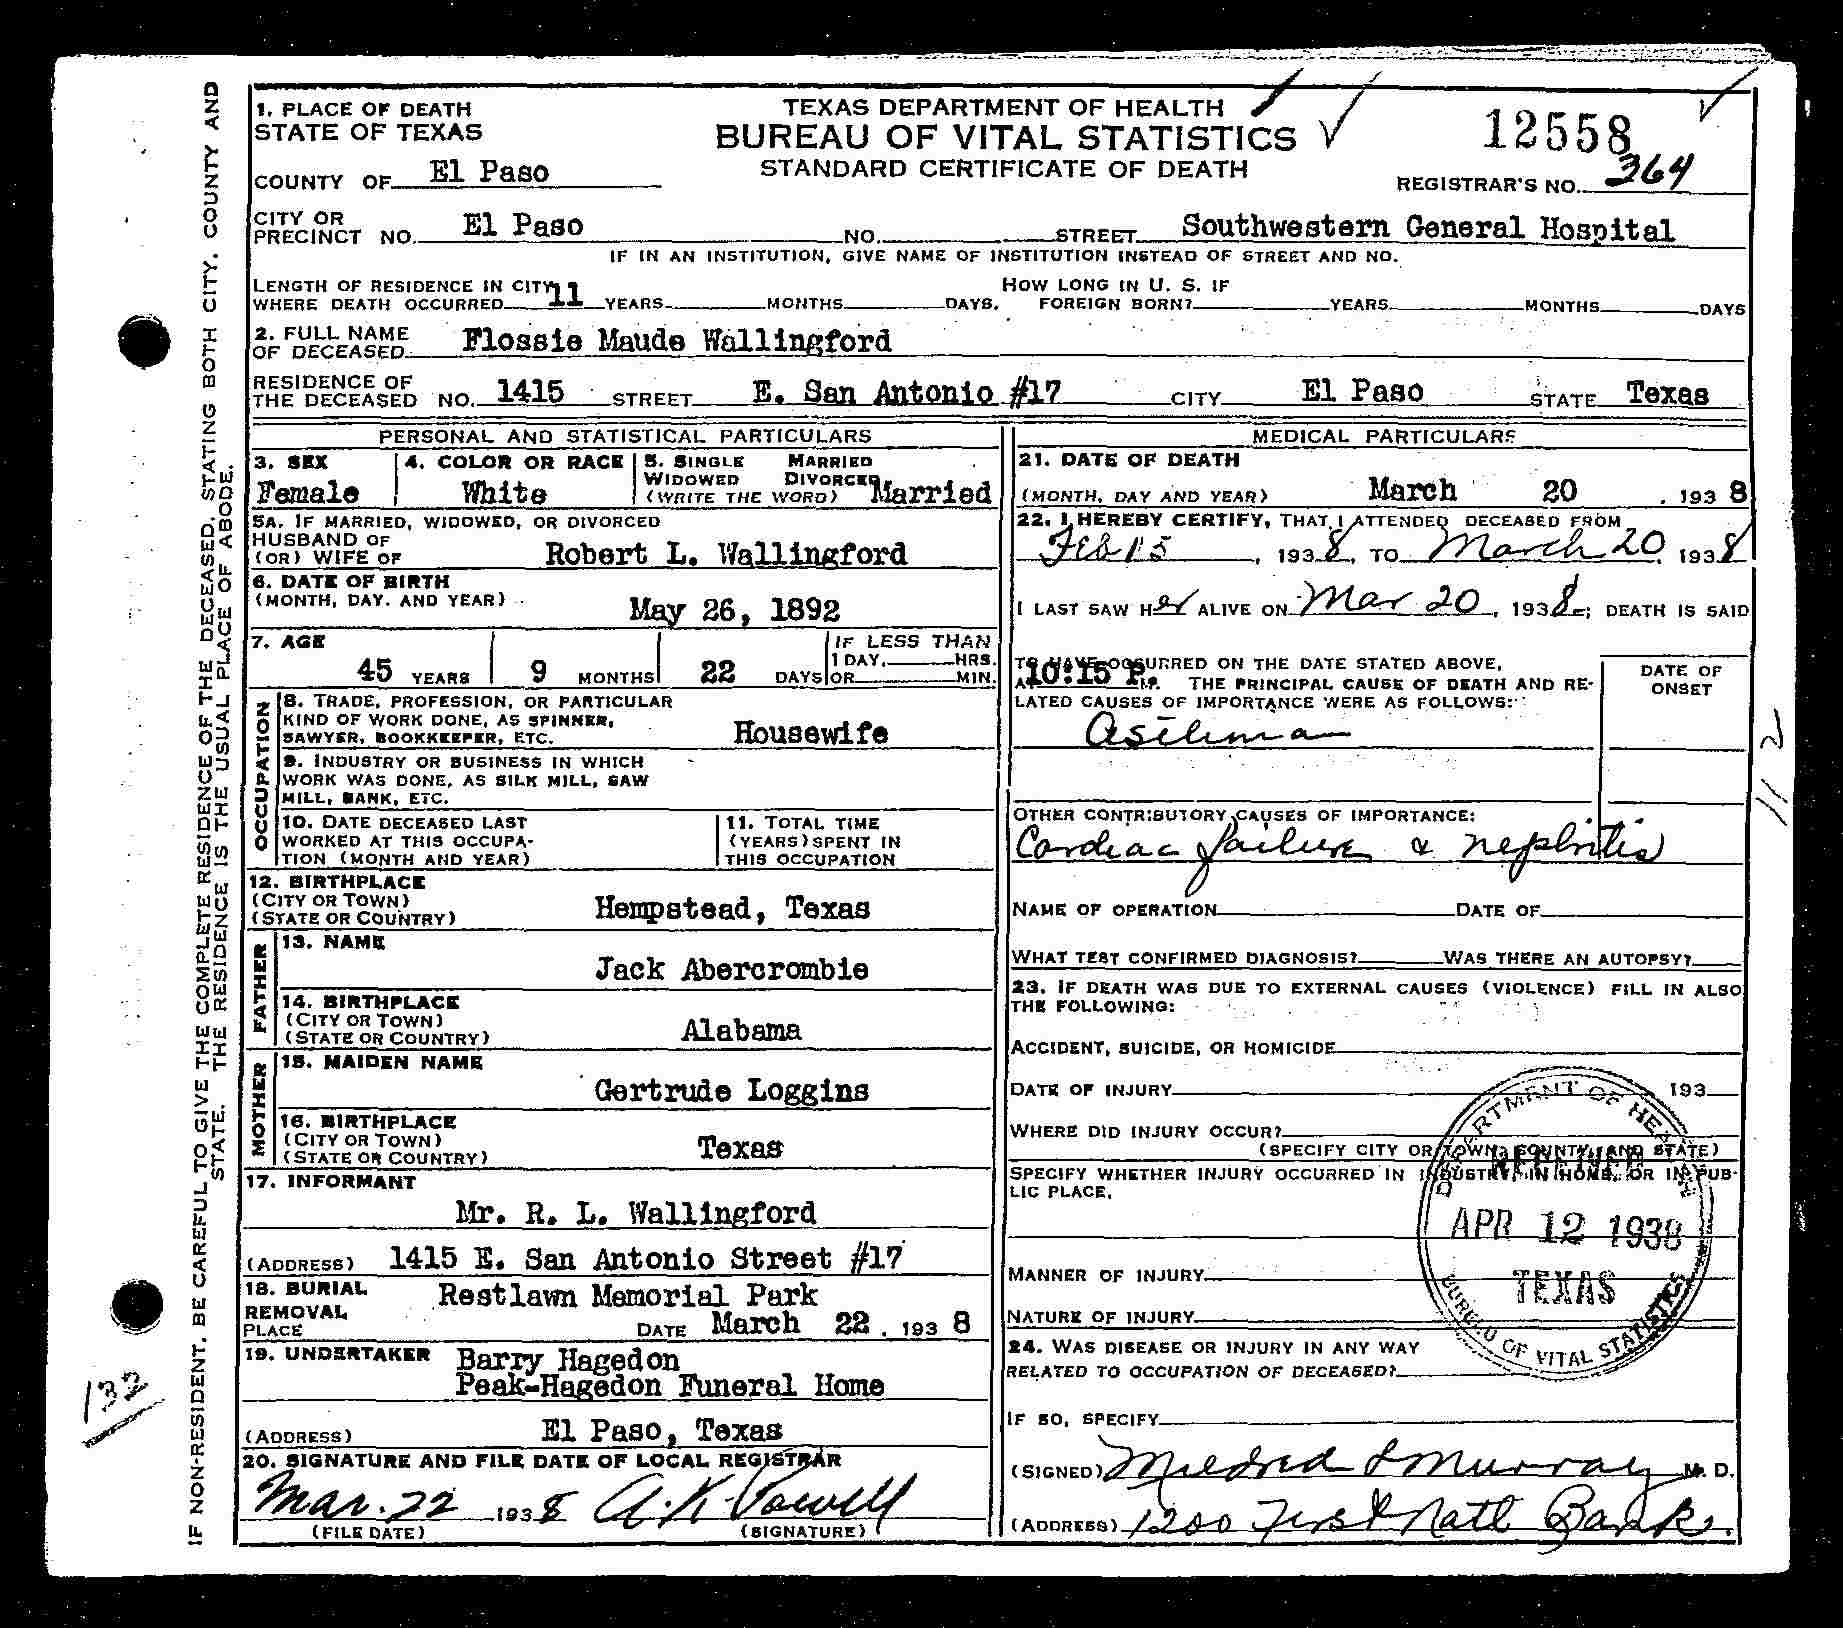 TEXAS DEPARTMENT OF HEALTH
BUREAU OF VITAL STATISTICS
STANDARD CERTIFICATE OF DEATH
12558
REGISTRAR'S NO. 364
1. PLACE OF DEATH
STATE OF TEXAS
COUNTY OF El Paso
CITY OR
PRECINCT NO. El Paso NO. STREET Southwestern General Hospital
IF IN AN INSTITUTION, GIVE NAME OF INSTITUTION INSTEAD OF STREET AND NO.
LENGTH OF RESIDENCE IN CITY
WHERE DEATH OCCURRED 11 YEARS MONTHS DAYS.
HOW LONG IN U. S. IF
FOREIGN BORN? YEARS MONTHS DAYS
2. FULL NAME
OF DECEASED Flossie Maude Wallingford
RESIDENCE OF
THE DECEASED NO. 1415 STREET E. San Antonio #17 CITY El Paso STATE Texas
PERSONAL AND STATISTICAL PARTICULARS
3. SEX
Female
4. COLOR OR RACE
White
5. SINGLE MARRIED
WIDOWED DIVORCED
(WRITE THE WORD) Married
5A. IF MARRIED, WIDOWED, OR DIVORCED
HUSBAND OF
(OR) WIFE OF Robert L. Wallingford
6. DATE OF BIRTH
(MONTH, DAY. AND YEAR) May 26, 1892
7. AGE
45 YEARS 9 MONTHS 22 DAYS
IF LESS THAN
1 DAY, HRS.
OR MIN.
OCCUPATION
8. TRADE, PROFESSION, OR PARTICULAR
KIND OF WORK DONE, AS SPINNER,
SAWYER, BOOKKEEPER, ETC. Housewife
9. INDUSTRY OR BUSINESS IN WHICH
WORK WAS DONE, AS SILK MILL, SAW
MILL, BANK, ETC.
10. DATE DECEASED LAST
WORKED AT THIS OCCUPA-
TION (MONTH AND YEAR)
11. TOTAL TIME
(YEARS) SPENT IN
THIS OCCUPATION
12. BIRTHPLACE
(CITY OR TOWN)
(STATE OR COUNTRY) Hempstead, Texas
FATHER
13. NAME
Jack Abercrombie
14. BIRTHPLACE
(CITY OR TOWN)
(STATE OR COUNTRY) Alabama
MOTHER
15. MAIDEN NAME
Gertrude Loggins
16. BIRTHPLACE
(CITY OR TOWN)
(STATE OR COUNTRY) Texas
17. INFORMANT
Mr. R. L. Wallingford
(ADDRESS) 1415 E. San Antonio Street #17
18. BURIAL Restlawn Memorial Park
REMOVAL
PLACE DATE March 22, 1938
19. UNDERTAKER Barry Hagedon
Peak-Hagedon Funeral Home
(ADDRESS) El Paso, Texas
20. SIGNATURE AND FILE DATE OF LOCAL REGISTRAR
Mar. 22 1938 A. K. Powell
(FILE DATE) (SIGNATURE)
MEDICAL PARTICULARS
21. DATE OF DEATH
(MONTH, DAY AND YEAR) March 20, 1938
22. I HEREBY CERTIFY, THAT I ATTENDED DECEASED FROM
Feb 15, 1938, TO March 20, 1938
I LAST SAW Her ALIVE ON Mar 20, 1938; DEATH IS SAID
TO HAVE OCCURRED ON THE DATE STATED ABOVE,
AT 10:15 P.M. THE PRINCIPAL CAUSE OF DEATH AND RE-
LATED CAUSES OF IMPORTANCE WERE AS FOLLOWS:
DATE OF
ONSET
Asthma
OTHER CONTRIBUTORY CAUSES OF IMPORTANCE:
Cardiac failure & nephritis
NAME OF OPERATION DATE OF
WHAT TEST CONFIRMED DIAGNOSIS? WAS THERE AN AUTOPSY?
23. IF DEATH WAS DUE TO EXTERNAL CAUSES (VIOLENCE) FILL IN ALSO
THE FOLLOWING:
ACCIDENT, SUICIDE, OR HOMICIDE
DATE OF INJURY 193
WHERE DID INJURY OCCUR?
(SPECIFY CITY OR TOWN, COUNTY, AND STATE)
SPECIFY WHETHER INJURY OCCURRED IN INDUSTRY, IN HOME, OR IN PUB-
LIC PLACE.
MANNER OF INJURY
NATURE OF INJURY
24. WAS DISEASE OR INJURY IN ANY WAY
RELATED TO OCCUPATION OF DECEASED?
IF SO, SPECIFY
(SIGNED) Mildred L Murray M. D.
(ADDRESS) 1200 First Natl Bank.
DEPARTMENT OF HEALTH
RECEIVED
APR 12 1938
TEXAS
BUREAU OF VITAL STATISTICS
112
132
IF NON-RESIDENT, BE CAREFUL TO GIVE THE COMPLETE RESIDENCE OF THE DECEASED, STATING BOTH CITY, COUNTY AND
STATE. THE RESIDENCE IS THE USUAL PLACE OF ABODE.